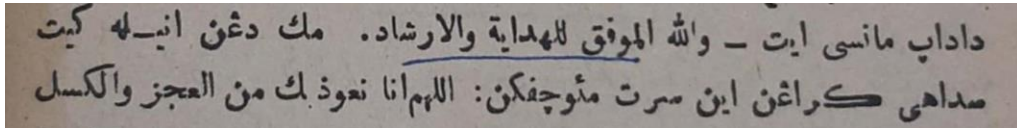 داداب مانسى ايت – والله الموفق للهداية والارشاد. مك دڠن انيله كيت
سداهى كراڠن اين سرت مڠوچفكن: اللهم انا نعوذ بك من العجز والكسل